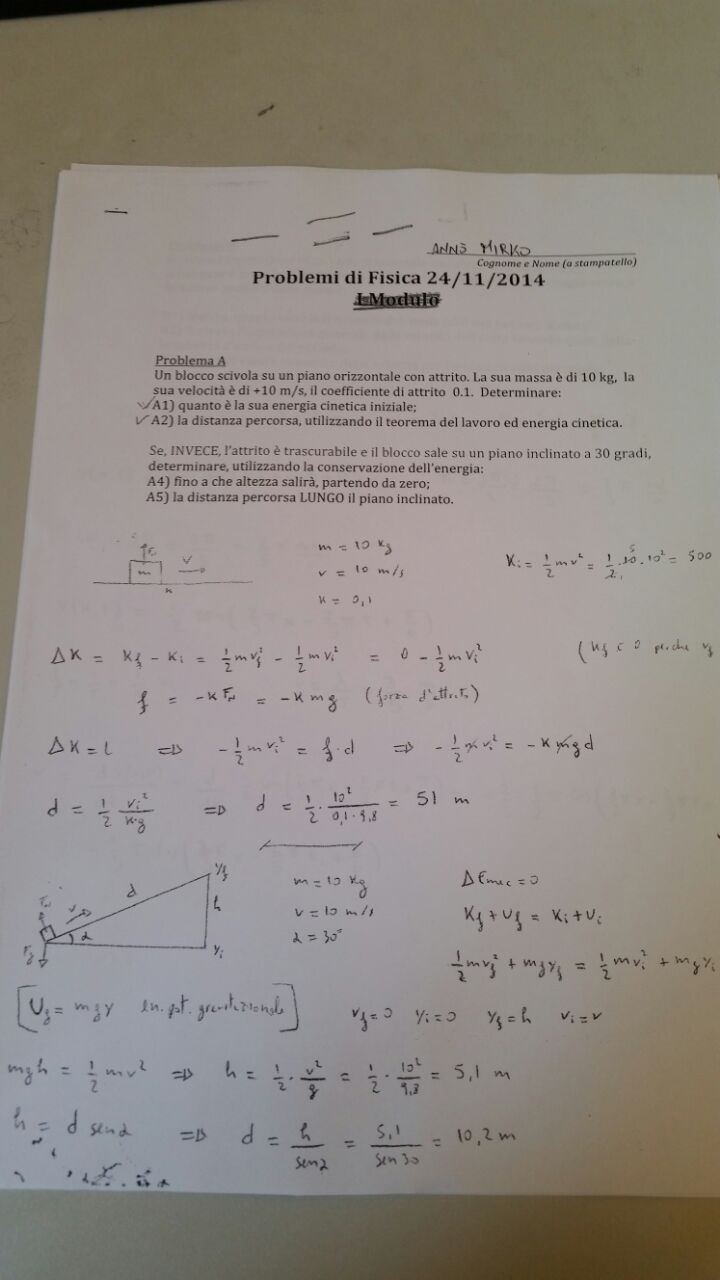 ANNS MIRKO
Cognome e Nome (a stampatello)
Problemi di Fisica 24/11/2014
I Modulo
Problema A
Un blocco scivola su un piano orizzontale con attrito. La sua massa è di 10 kg, la
sua velocità è di +10 m/s, il coefficiente di attrito 0.1. Determinare:
A1) quanto è la sua energia cinetica iniziale;
A2) la distanza percorsa, utilizzando il teorema del lavoro ed energia cinetica.
Se, INVECE, l'attrito è trascurabile e il blocco sale su un piano inclinato a 30 gradi,
determinare, utilizzando la conservazione dell'energia:
A4) fino a che altezza salirà, partendo da zero;
A5) la distanza percorsa LUNGO il piano inclinato.
m v k
m = 10 kg
v = 10 m/s
k = 0,1
Ki = 1/2 mv² = 1/2 · 10 · 10² = 500
ΔK = Kf - Ki = 1/2 mvf² - 1/2 mvi² = 0 - 1/2 mvi² (Kf è 0 perche vf
f = -k FN = -k mg (forza d'attrito)
ΔK = L ⇒ -1/2 mvi² = f · d ⇒ -1/2 m vi² = -k mg d
d = 1/2 vi²/k·g ⇒ d = 1/2 · 10²/0,1·9,8 = 51 m
FN v d h yf yi α Fg
m = 10 kg
v = 10 m/s
α = 30°
ΔEmec = 0
Kf + Uf = Ki + Ui
1/2 mvf² + mgyf = 1/2 mvi² + mgyi
[Ug = mgy en. pot. gravitazionale]
vf = 0 yi = 0 yf = h vi = v
mgh = 1/2 mv² ⇒ h = 1/2 · v²/g = 1/2 · 10²/9,8 = 5,1 m
h = d senα ⇒ d = h/senα = 5,1/sen30 = 10,2 m